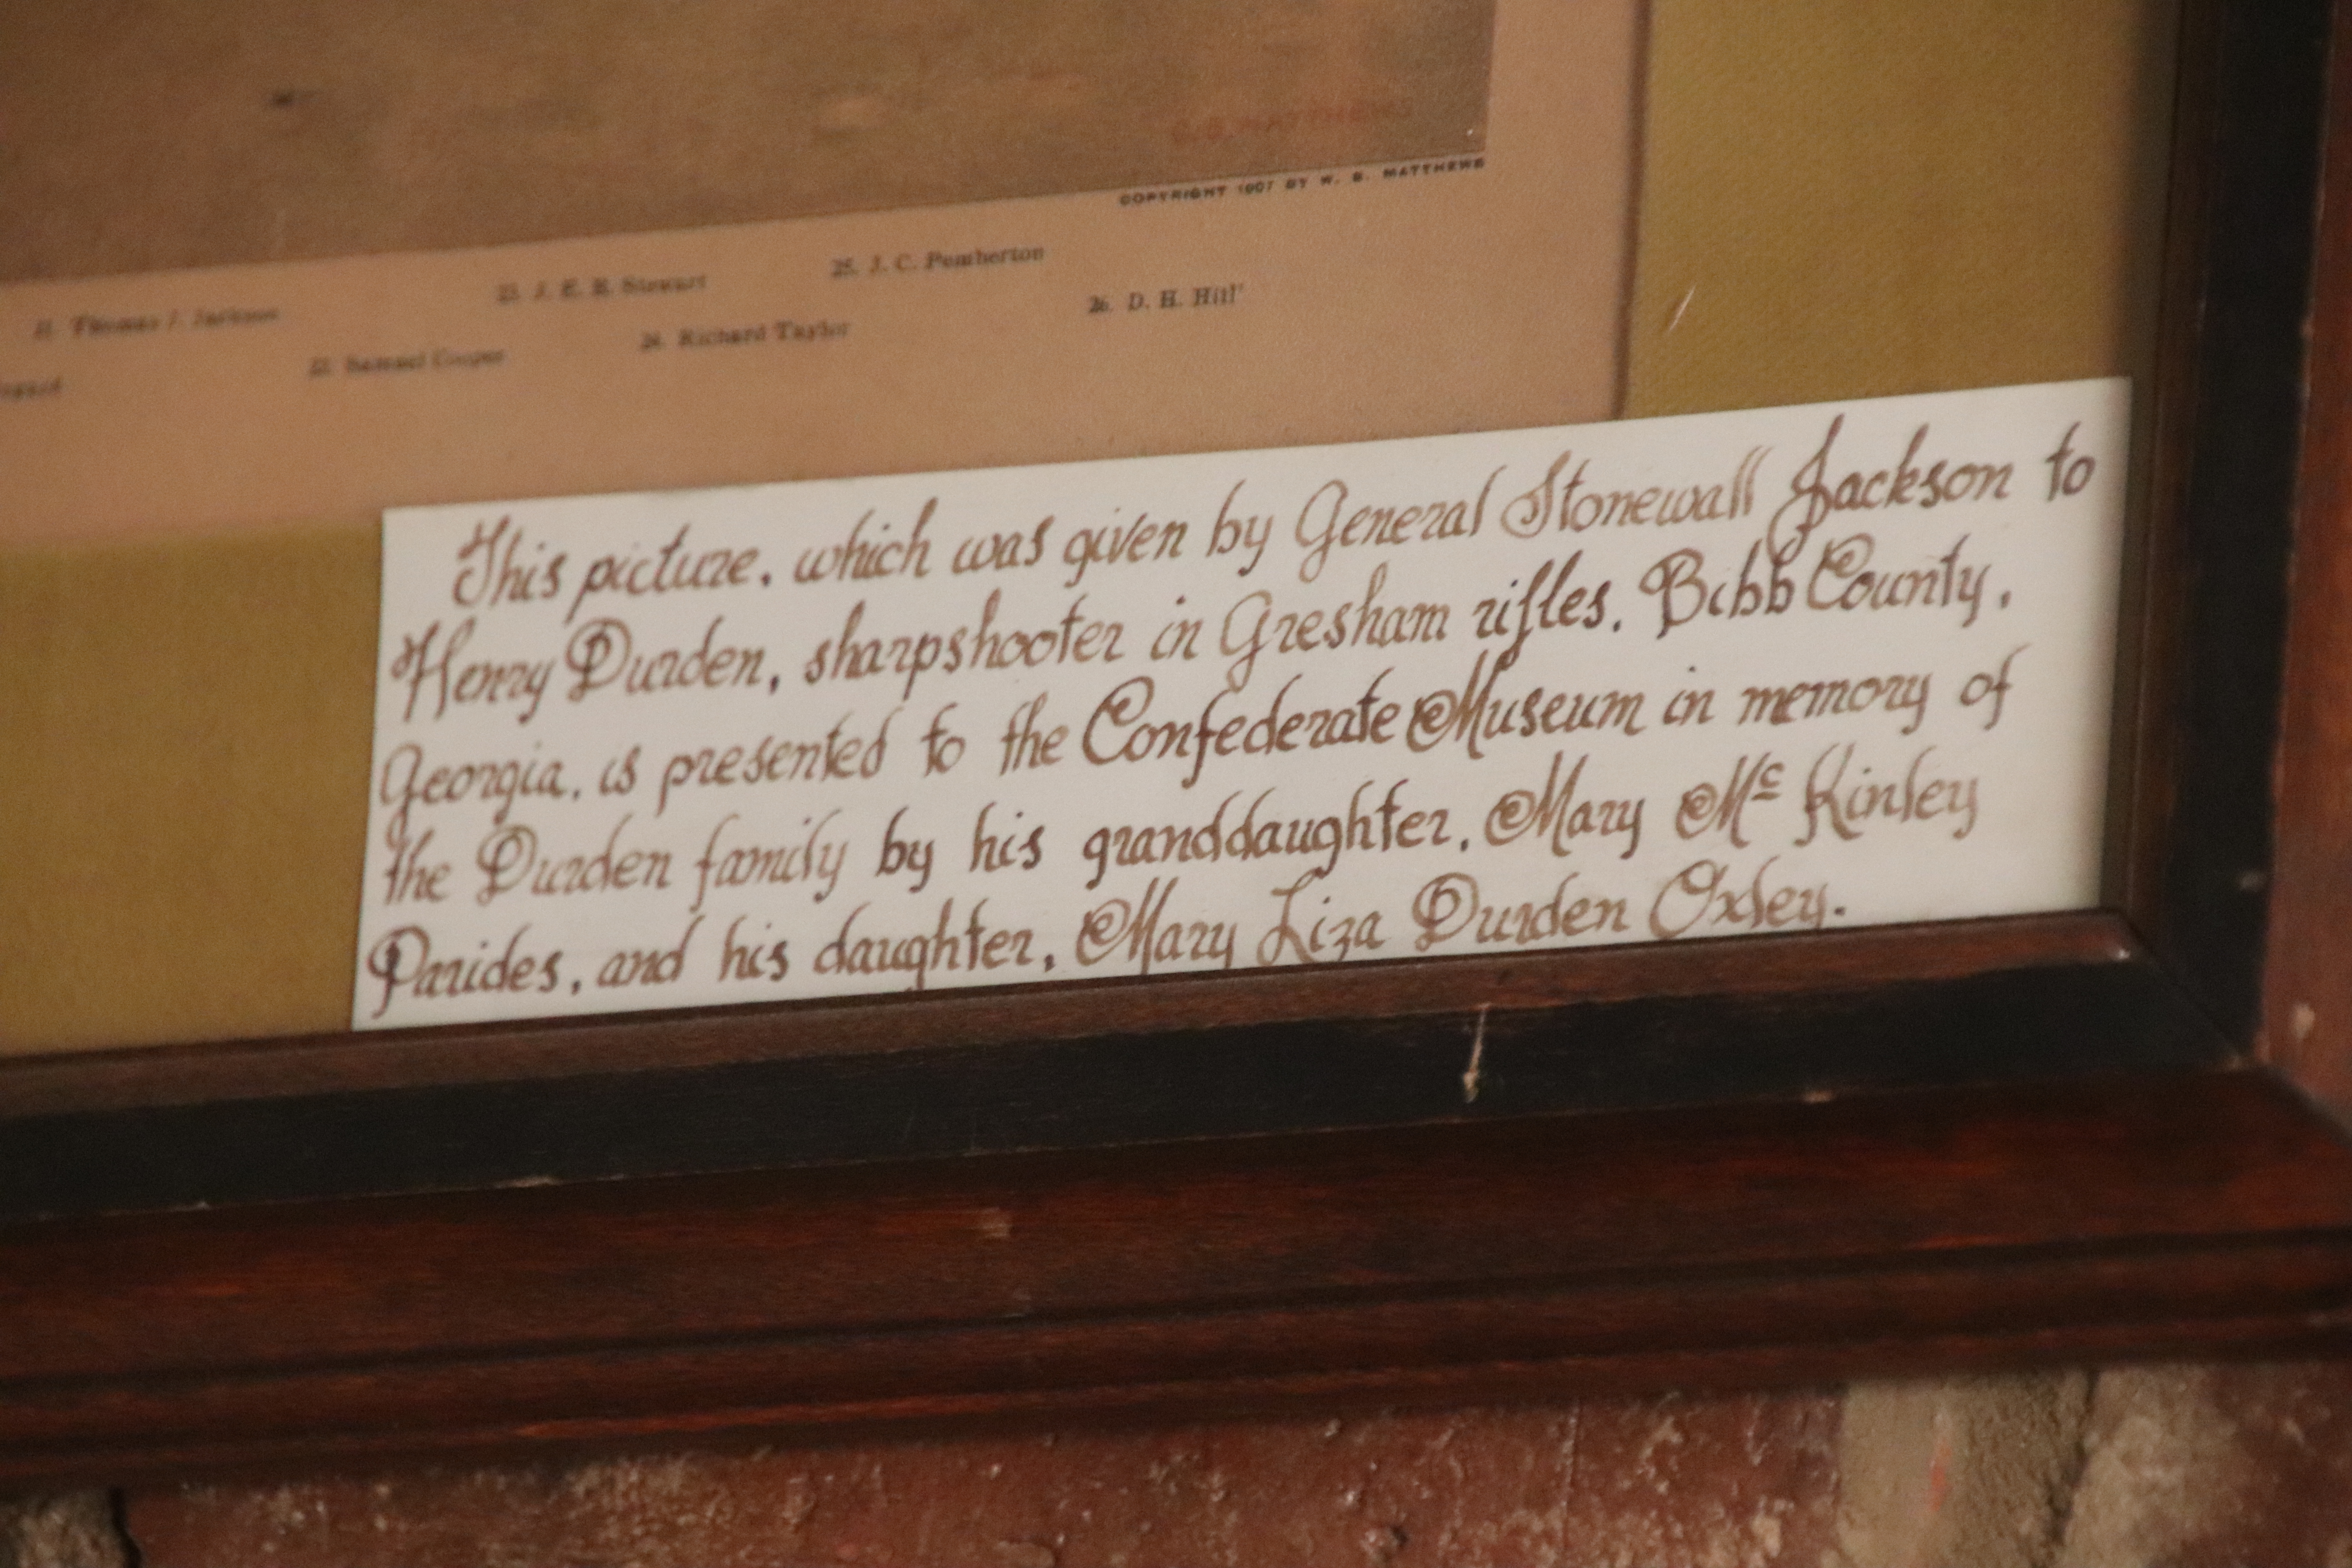 G.B. MATTHEWS
COPYRIGHT 1907 BY W. B. MATTHEWS
25. J. C. Pemberton
23. J. E. B. Stewart
26. D. H. Hill
21. Thomas J. Jackson
24. Richard Taylor
22. Samuel Cooper
This picture, which was given by General Stonewall Jackson to
Henry Durden, sharpshooter in Gresham rifles, Bibb County,
Georgia, is presented to the Confederate Museum in memory of
the Durden family by his granddaughter, Mary Mc Kinley
Parides, and his daughter, Mary Liza Durden Oxley.